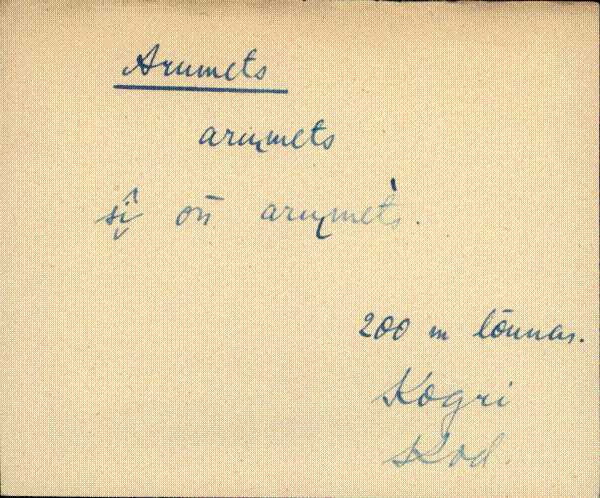 Arumets
arumets
sî on arumèts.
200 m lõunas.
Kogri
Kod.